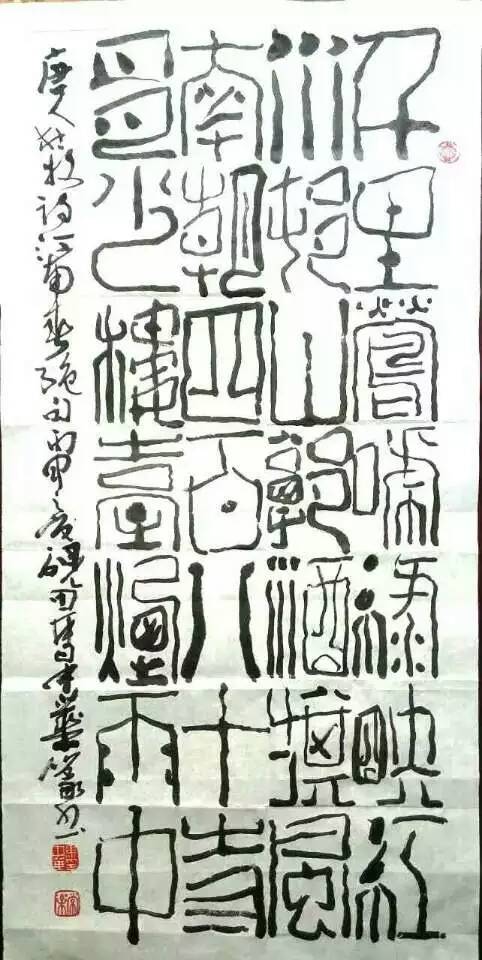 千里鶯啼綠映紅
水邨山郭酒旗風
南朝四百八十寺
多少樓臺煙雨中
唐人杜牧詩江南春絕句丙申